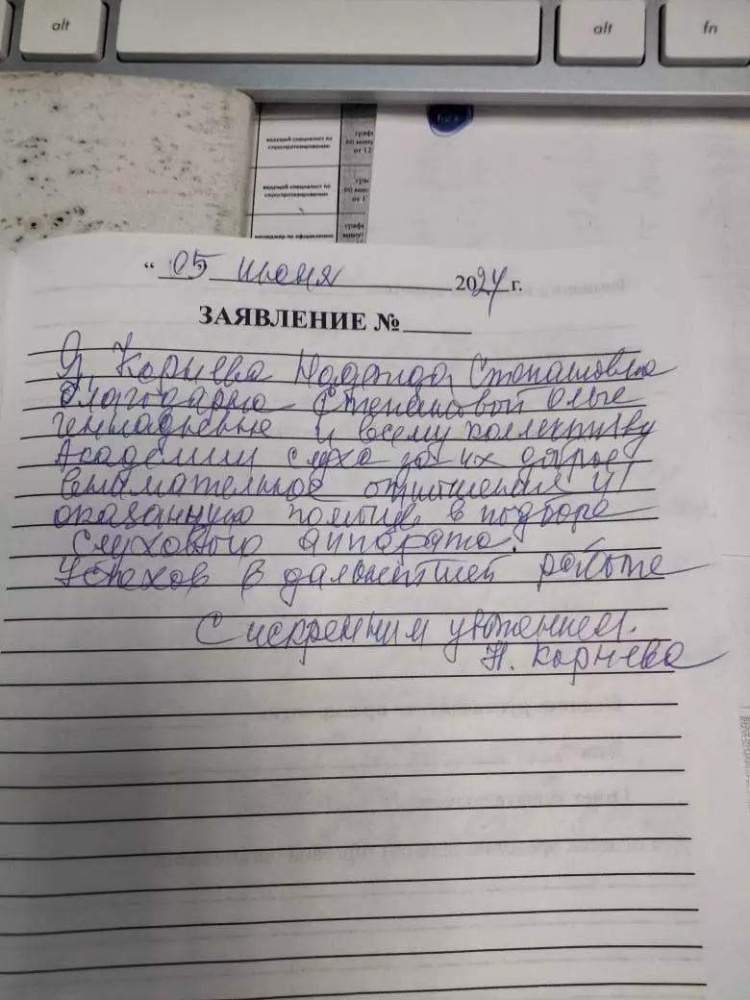 alt
alt
fn
ведущий специалист по слухопротезированию
ведущий специалист по слухопротезированию
" 05 июня 2024 г.
ЗАЯВЛЕНИЕ №
Я, Корнева Надежда Степановна
благодарю Степановой Ольге
Геннадьевне и всему коллективу
Академии слуха за их доброе
внимательное отношение и
оказанную помощь в подборе
слухового аппарата.
Успехов в дальнейшей работе
С искренним уважением.
Н. Корнева